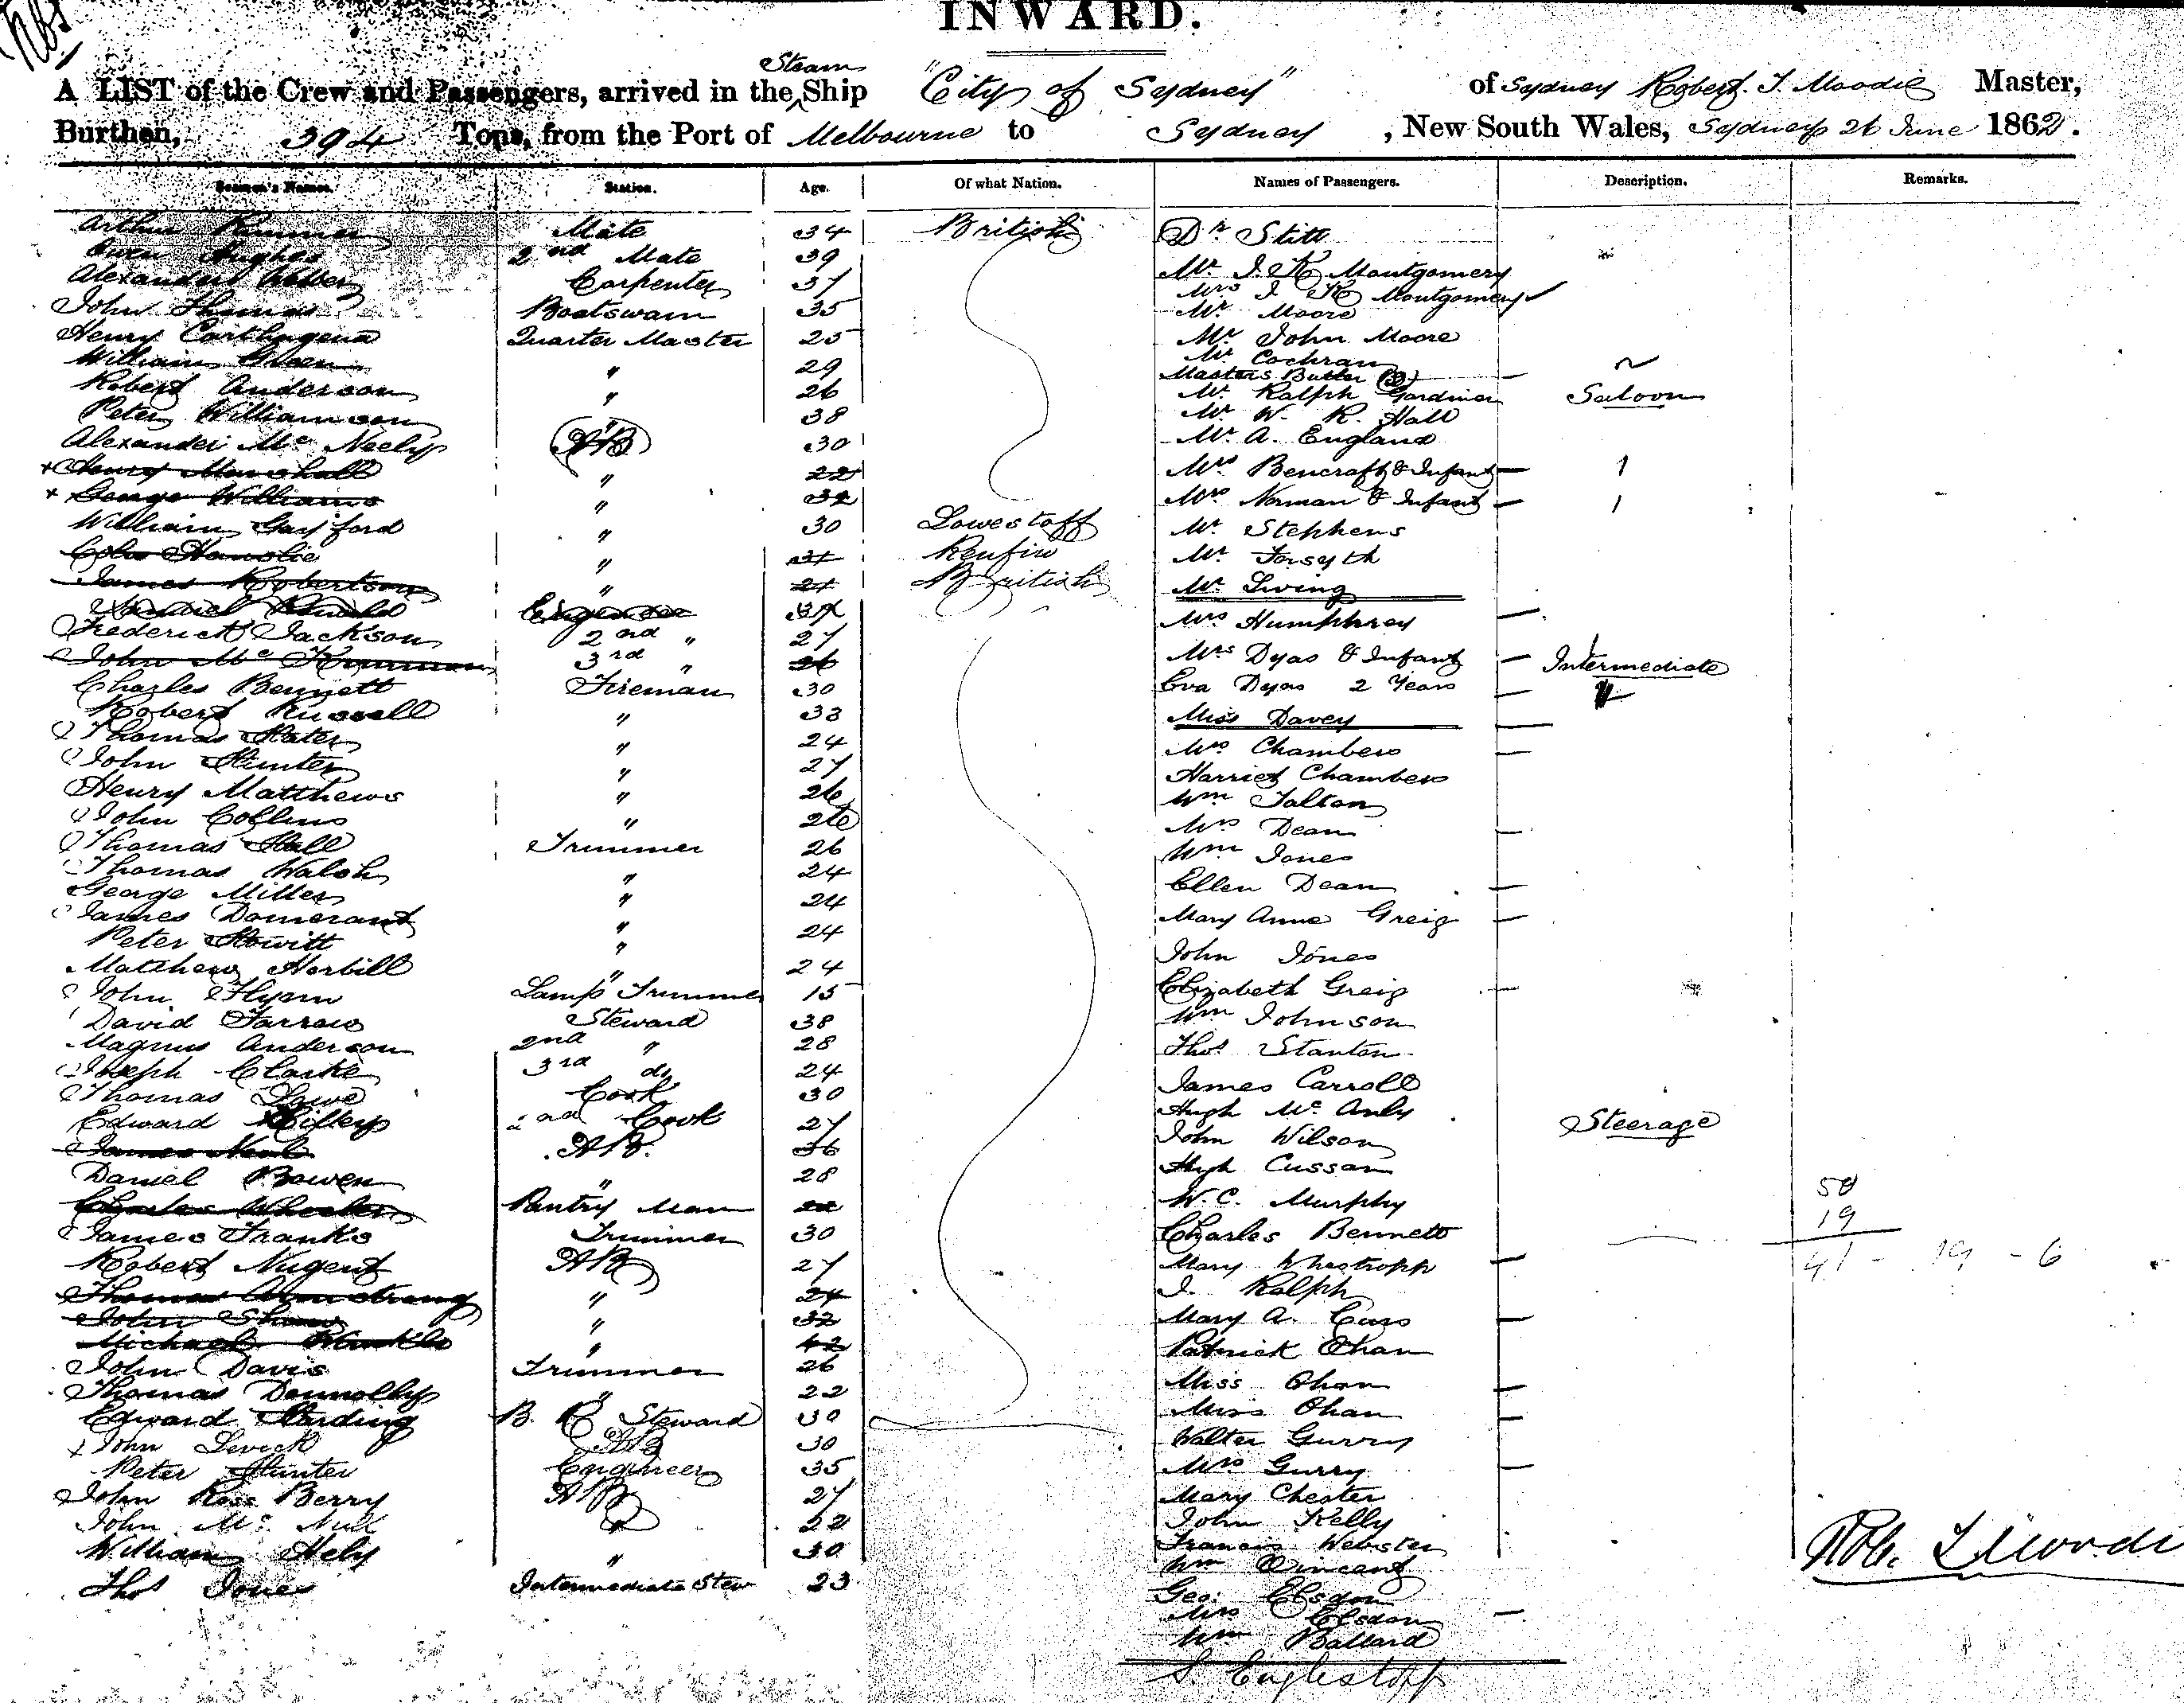 INWARD.
Steam
A LIST of the Crew and Passengers, arrived in the Ship "City of Sydney" of Sydney Robert. T. Moodie Master,
Burthen, 394 Tons, from the Port of Melbourne to Sydney, New South Wales, Sydney 26 June 1862.
Seamen's Names. Station. Age. Of what Nation. Names of Passengers. Description. Remarks.
Arthur Mate 34 British
Owen Hughes 2nd Mate 39
Alexander Webber Carpenter 37
John Thomas Boatswain 35
Henry Carthagena Quarter Master 25
William Green " 29
Robert Anderson " 26
Peter Williamson " 38
Alexander Mc Neely AB 30
x Henry Marshall " 22
x George Williams " 32
William Gayford " 30 Lowestoff
" 31 Renfrw
James Robertson " 21 British
Engineer 37
Frederick Jackson 2nd " 27
John Mc 3rd " 26
Charles Bennett Fireman 30
Robert Russell " 33
Thomas Slater " 24
John Hunter " 27
Henry Matthews " 26
John Collins " 26
Thomas Hall Trimmer 26
Thomas Walsh " 24
George Miller " 24
James Domerant "
Peter Howitt " 24
Matthew Harbill " 24
John Flynn Lamp Trimmer 15
David Farrow Steward 38
Magnus Anderson 2nd " 28
Joseph Clarke 3rd do 24
Thomas Lowe Cook 30
Edward 2nd Cook 27
James Neal AB. 36
Daniel Bowen " 28
Charles Wheeler Pantry Man
James Franks Trimmer 30
Robert Nugent AB 27
Thomas Armstrong " 24
John Shaw " 32
Michael " 42
John Davis Trimmer 26
Thomas Donnolly " 22
Edward Harding B. R Steward 30
x John Levick AB 30
Peter Hunter Engineer 35
John Ross Berry AB 27
John Mc Null " 22
William Hely " 30
Thos Jones Intermediate Stew 23
Dr. Stitt
Mr. J. K Montgomery
Mrs J K Montgomery
Mr. Moore
Mr. John Moore
Mr. Cochran
Masters Butler (3)
Mr. Ralph Gardiner Saloon
Mr. W. R. Hall
Mr. A. England
Mrs Bencraft & Infant 1
Mrs Norman & Infant 1
Mr. Stephens
Mr. Forsyth
Mr. Ewing
Mrs Humphrey
Mrs Dyas & Infant Intermediate
Eva Dyas 2 Years
Miss Davey
Mrs Chambers
Harriet Chambers
Wm Talton
Mrs Dean
Wm Jones
Ellen Dean
Mary Anne Greig
John Jones
Elizabeth Greig
Wm Johnson
Thos. Stanton
James Carroll
Hugh Mc Anly Steerage
John Wilson
Hugh Cussan
W. C. Murphy 50
Charles Bennett 19
Mary Whestropp 41 - 19 - 6
J. Ralph
Mary A. Cuss
Patrick Ohan
Miss Ohan
Miss Ohan
Walter Gurry
Mrs Gurry
Mary Chester
John Kelly
Francis Webster
Wm Vincent
Geo. Elsdon
Mrs Elsdon
Wm Ballard
S. Englestoff
Rob. T Moodie